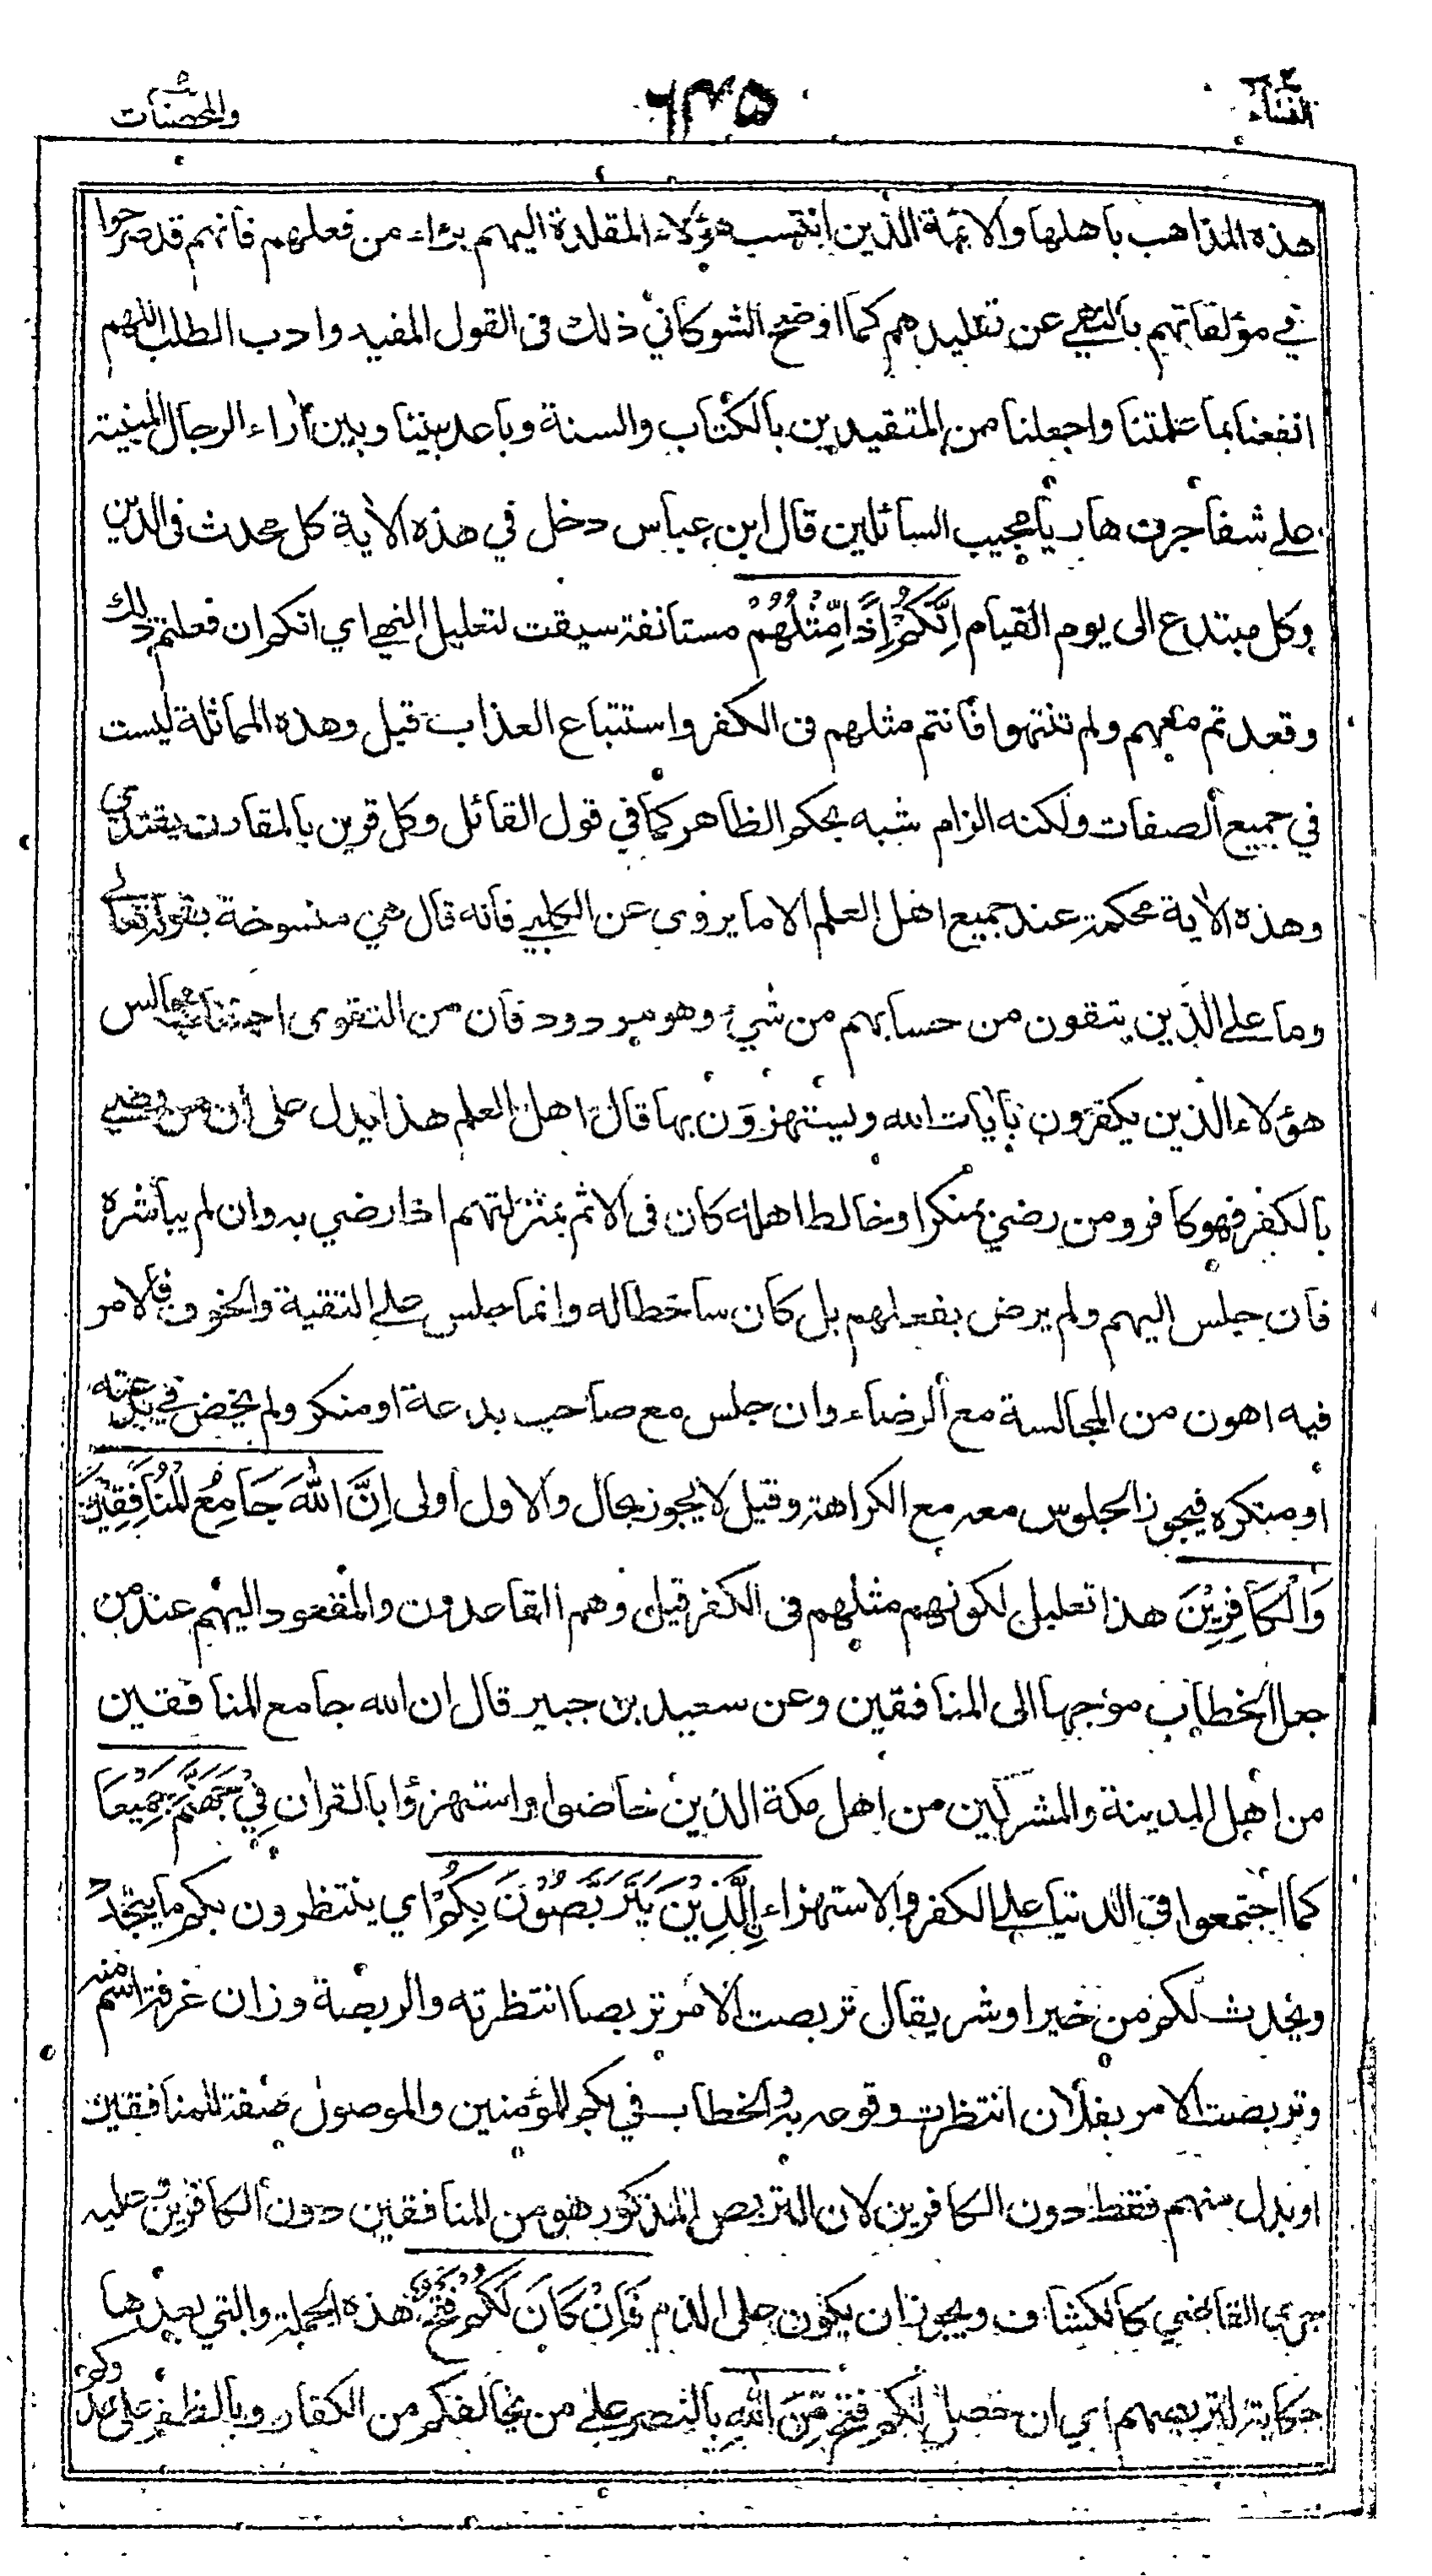 النساء ٤
٦٣٥
والمحصنات ٥
هذه المذاهب باهلها والائمة الذين انتسب هؤلاء المقلدة اليهم براء من فعلهم فانهم قد صرحوا
في مؤلفاتهم بالنهي عن تقليدهم كما اوضح الشوكاني ذلك فى القول المفيد وادب الطلب اللهم
انفعنا بما علمتنا واجعلنا من المتقيدين بالكتاب والسنة وباعد بيننا وبين اٰراء الرجال المبنية
على شفا جرف هار يا مجيب السائلين قال ابن عباس دخل في هذه الاٰية كل محدث فى الدين
وكل مبتدع الى يوم القيام اِنَّكُمْ اِذًا مِّثْلُهُمْ مستانفة سيقت لتعليل النهي اي انكم ان فعلتم ذلك
وقعدتم معهم ولم تنتهوا فانتم مثلهم فى الكفر واستتباع العذاب قيل وهذه المماثلة ليست
في جميع الصفات ولكنه الزام شبه بحكم الظاهر كما في قول القائل وكل قرين بالمقارن يقتدي
وهذه الاٰية محكمة عند جميع اهل العلم الا ما يروى عن الكلبي فانه قال هي منسوخة بقوله تعالى
وما على الذين يتقون من حسابهم من شيء وهو مردود فان من التقوى اجتناب مجالس
هؤلاء الذين يكفرون باٰيات الله ويستهزؤن بها قال اهل العلم هذا يدل على ان من رضي
بالكفر فهو كافر ومن رضي بمنكر او خالط اهله كان فى الاثم بمنزلتهم اذا رضي به وان لم يباشره
فان جلس اليهم ولم يرض بفعلهم بل كان ساخطا له وانما جلس على التقية والخوف فالامر
فيه اهون من المجالسة مع الرضاء وان جلس مع صاحب بدعة او منكر ولم يخض في بدعته
او منكره فيجوز الجلوس معه مع الكراهة وقيل لا يجوز بحال والاول اولى اِنَّ اللّٰهَ جَامِعُ الْمُنَافِقِيْنَ
وَالْكَافِرِيْنَ هذا تعليل لكونهم مثلهم فى الكفر قيل وهم القاعدون والمقعود اليهم عند من
جعل الخطاب موجها الى المنافقين وعن سعيد بن جبير قال ان الله جامع المنافقين
من اهل المدينة والمشركين من اهل مكة الذين خاضوا واستهزؤا بالقراٰن فِيْ جَهَنَّمَ جَمِيْعًا
كما اجتمعوا فى الدنيا على الكفر والاستهزاء اِلَّذِيْنَ يَتَرَبَّصُوْنَ بِكُمْ اي ينتظرون بكم ما يتجدد
ويحدث لكم من خير او شر يقال تربصت الامر تربصا انتظرته والربصة وزان غرفة اسم منه
وتربصت الامر بفلان انتظرت وقوعه به والخطاب في بكم للمؤمنين والموصول صفة للمنافقين
او بدل منهم فقط دون الكافرين لان التربص المذكور هو من المنافقين دون الكافرين وعليه
جرى القاضي كالكشاف ويجوز ان يكون على الذم فَاِنْ كَانَ لَكُمْ فَتْحٌ هذه الجملة والتي بعدها
حكاية لتربصهم اي ان حصل لكم فتح مِّنَ اللّٰهِ بالنصر على من يخالفكم من الكفار وبالظفر على عدوكم